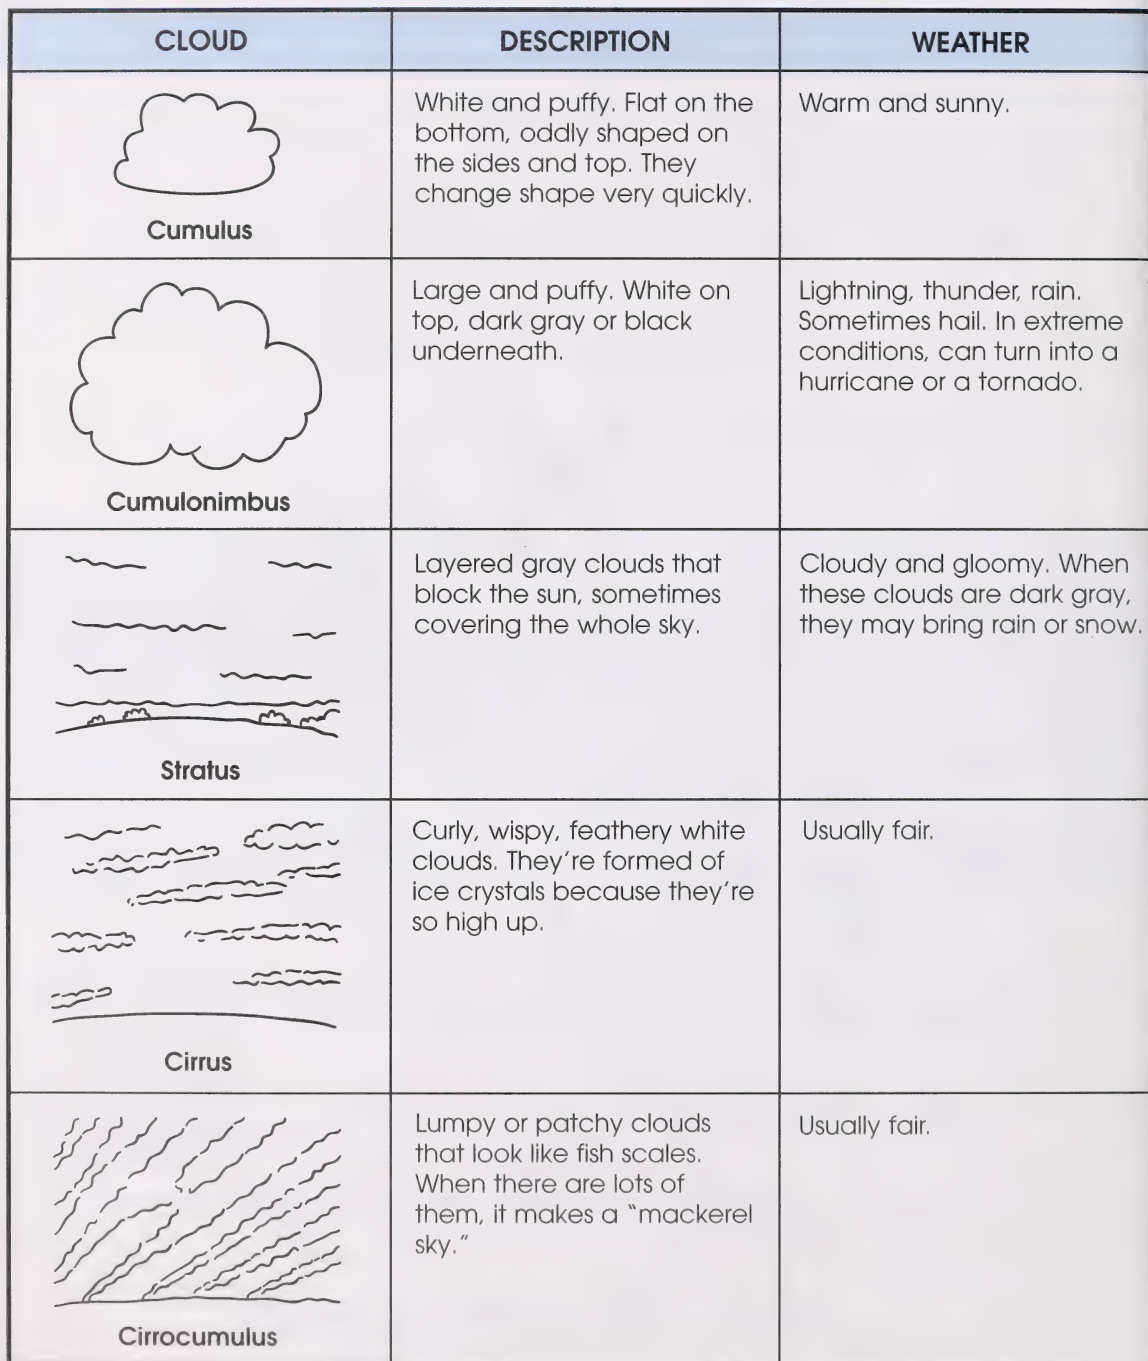 CLOUD DESCRIPTION WEATHER
White and puffy. Flat on the
bottom, oddly shaped on
the sides and top. They
change shape very quickly.
Warm and sunny.
Cumulus
Large and puffy. White on
top, dark gray or black
underneath.
Lightning, thunder, rain.
Sometimes hail. In extreme
conditions, can turn into a
hurricane or a tornado.
Cumulonimbus
Layered gray clouds that
block the sun, sometimes
covering the whole sky.
Cloudy and gloomy. When
these clouds are dark gray,
they may bring rain or snow.
Stratus
Curly, wispy, feathery white
clouds. They're formed of
ice crystals because they're
so high up.
Usually fair.
Cirrus
Lumpy or patchy clouds
that look like fish scales.
When there are lots of
them, it makes a "mackerel
sky."
Usually fair.
Cirrocumulus